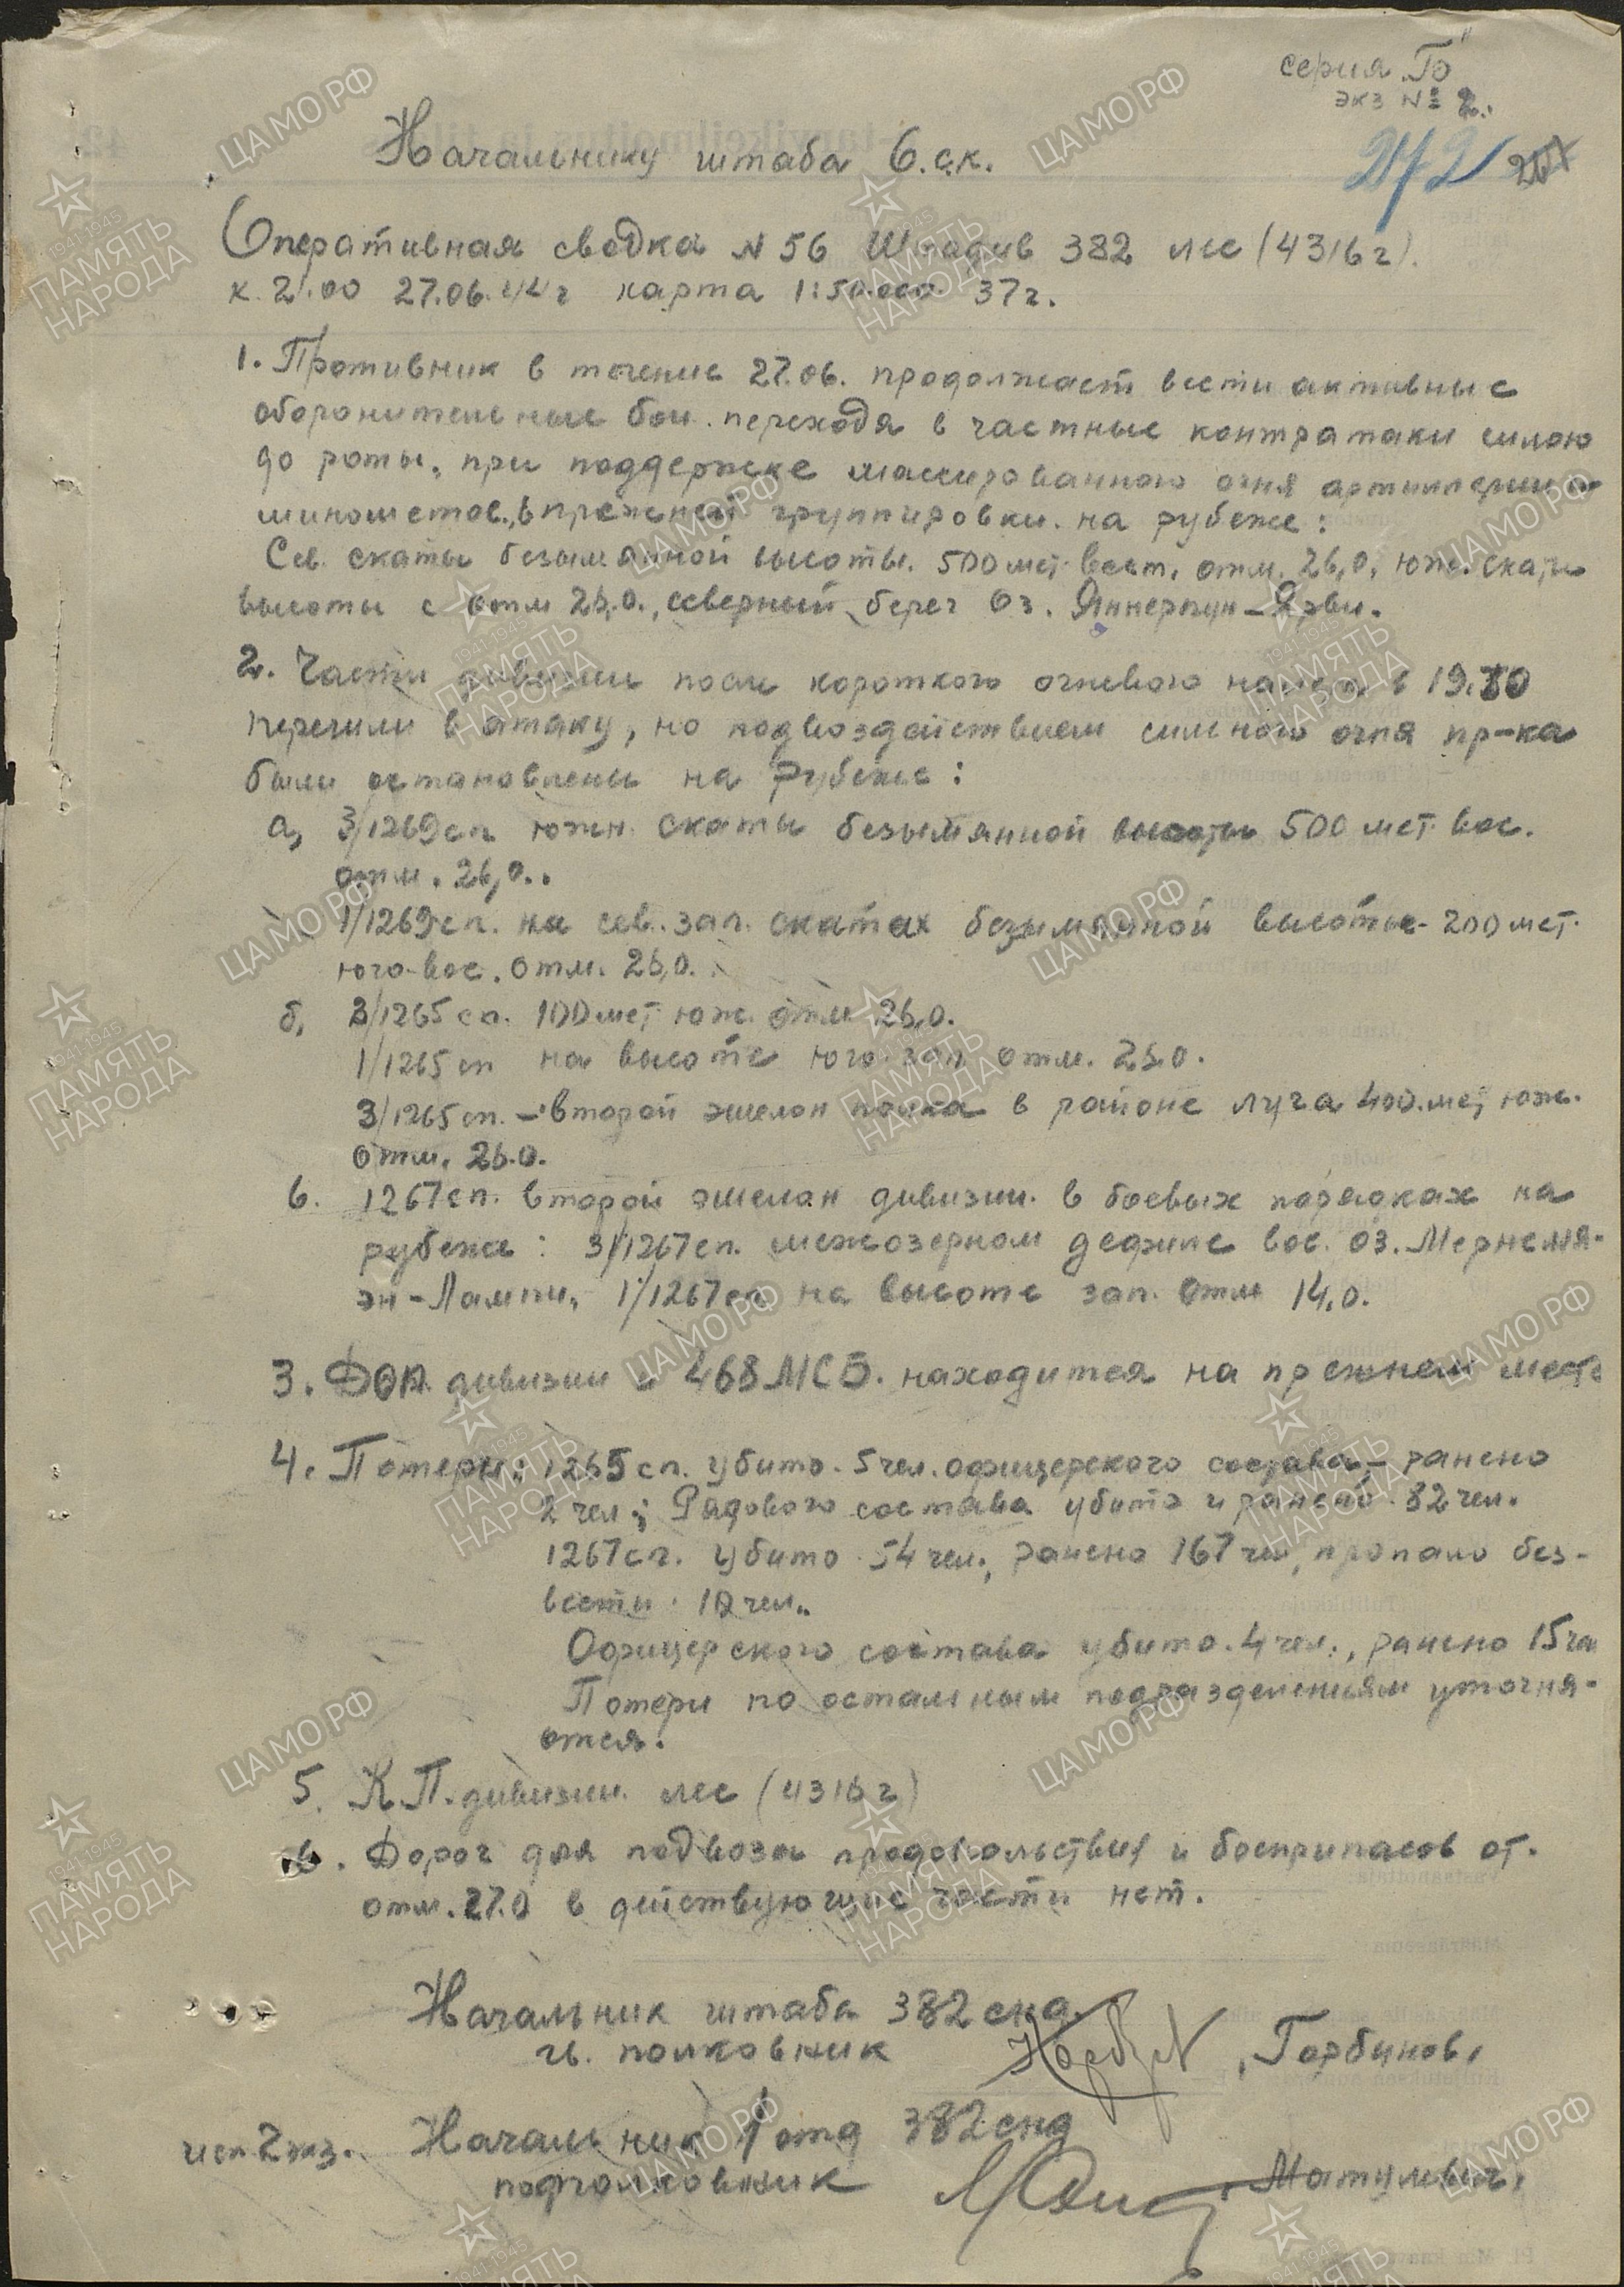 серия "Б"
экз № 2.
272
Начальнику штаба 6.ск.
Оперативная сводка N 56 Штадив 382 лес (4316г).
к 21.00 27.06.44г карта 1:50.000 37г.
1. Противник в течение 27.06. продолжает вести активные
оборонительные бои. переходя в частные контратаки силою
до роты, при поддержке массированного огня артиллерии и
минометов, в прежней группировки. на рубеже:
Сев. скаты безымянной высоты. 500 мет. вост. отм. 26,0, юж. скаты
высоты с отм 26,0., северный берег Оз. -Ярви.
2. Части дивизии после короткого огневого налета в 19.30
перешли в атаку, но под воздействием сильного огня пр-ка
были остановлены на рубеже:
а, 3/1269сп южн. скаты безымянной высоты 500 мет. вос.
отм. 26,0..
1/1269сп. на сев. зап. скатах безымянной высоты- 200 мет.
юго-вос. отм. 26,0.
б, 1265 сп. 100 мет. юж. отм 26,0.
1/1265 сп на высоте юго-зап отм. 26.0.
3/1265 сп. - второй эшелон полка в районе луга 400.мет, юж.
отм. 26.0.
в. 1267 сп. второй эшелон дивизии. в боевых порядках на
рубеже: 3/1267 сп. межозерном дефиле вос. оз.
эн-Лампи, 1/1267 сп на высоте зап. отм 14,0.
3. ДОП. дивизии и 468 МСБ. находится на прежнем месте
4. Потери: 1265 сп. убито. 5 чел. офицерского состава, - ранено
2 чел.; Рядового состава убито и ранено. 82 чел.
1267 сп. убито 54 чел., ранено 167 чел, пропало без-
вести. 10 чел..
Офицерского состава убито. 4 чел., ранено 15 чел
Потери по остальным подразделениям уточня-
ются.
5. КП. дивизии. лес (4316г)
6. Дорог для подвоза продовольствия и боеприпасов от.
отм. 27.0 в действующие части нет.
Начальник штаба 382 скд
гв. полковник , Горбинов,
исп 2 экз. Начальник 1 отд 382скд
подполковник , Матулевич,
ЦАМО РФ
1941-1945
ПАМЯТЬ
НАРОДА